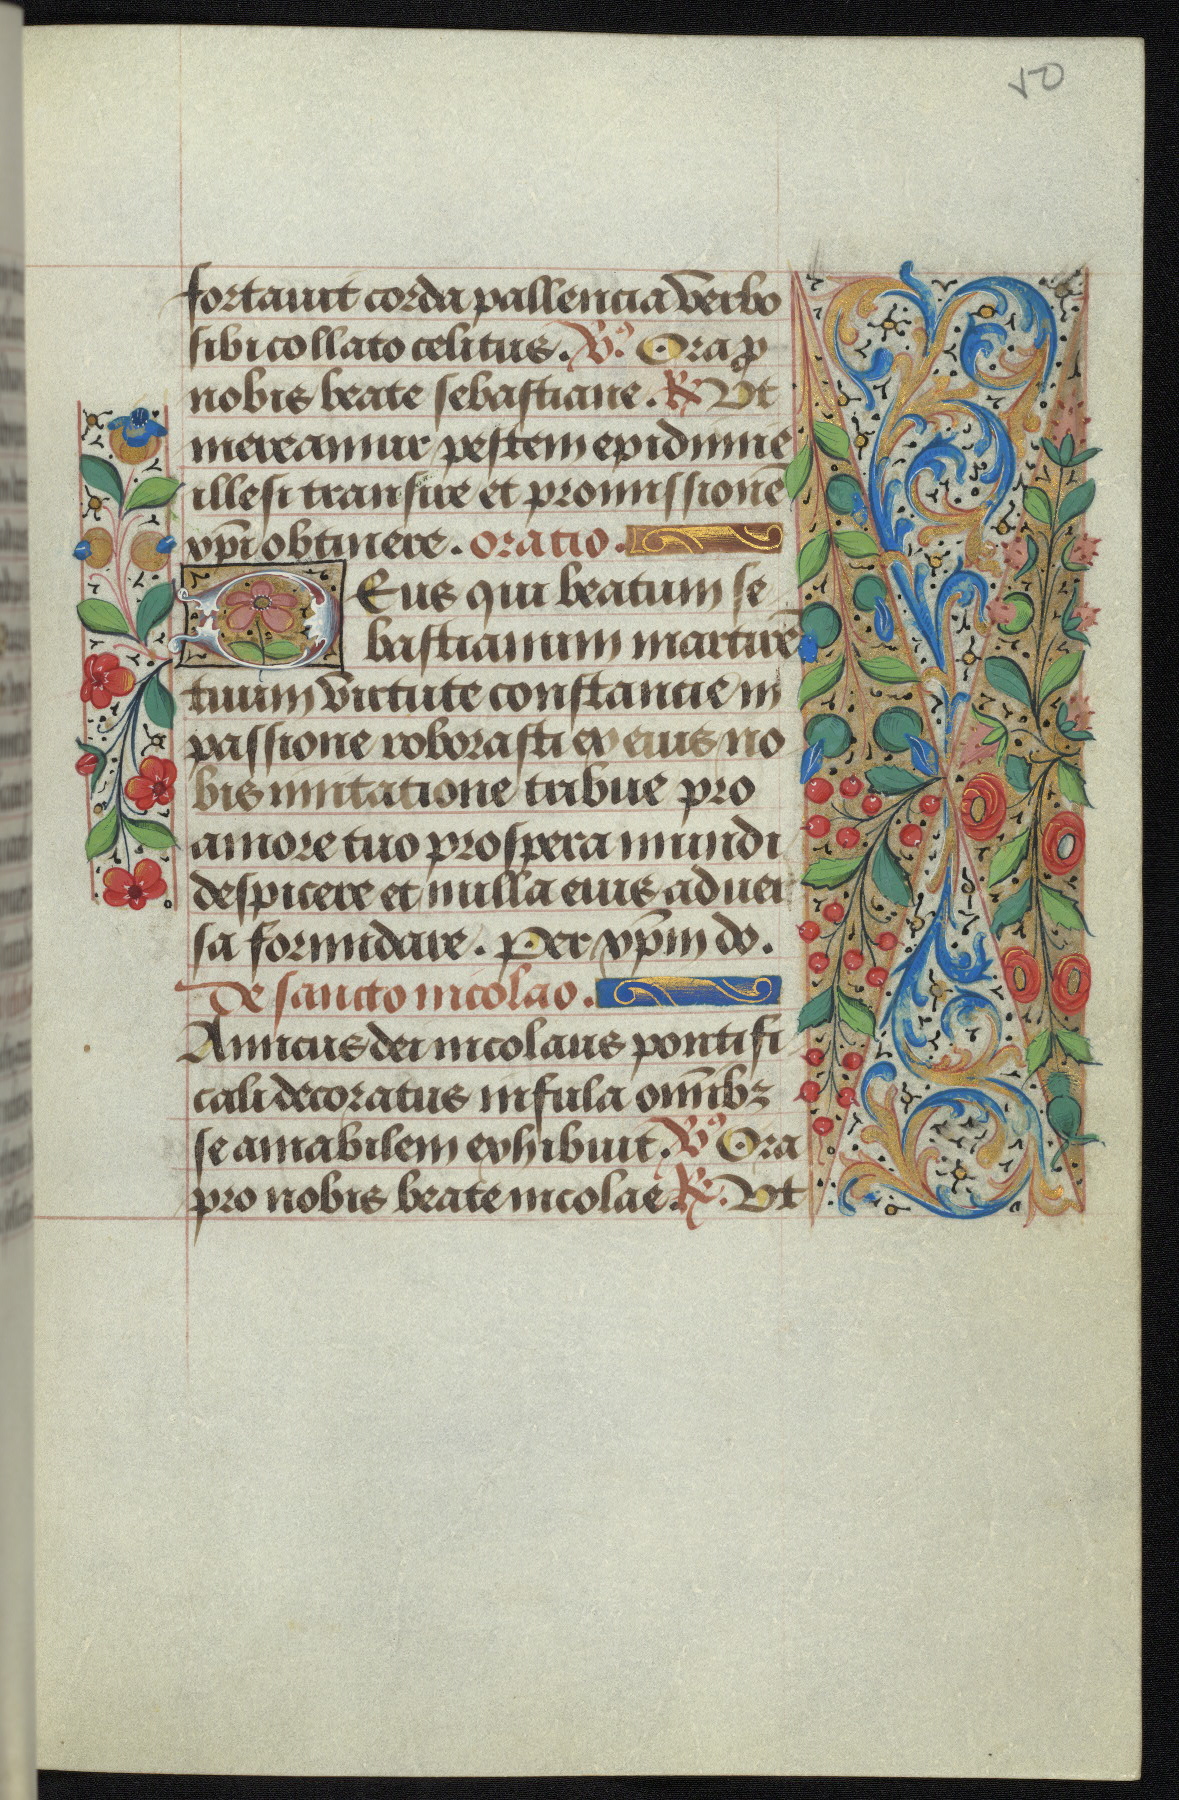 50
fortauit corda pallencia verbo
sibi collato celitus. ℣. Ora ꝓ
nobis beate sebastiane. ℟ Vt
mereamur pestem epidimie
illesi transire et promissionē
xp̄i obtinere. oratio.
Deus qui beatum se
bastianum martirē
tuum virtute constancie in
passione roborasti ex eius no
bis imitatione tribue pro
amore tuo prospera mundi
despicere et nulla eius aduer
sa formidare. Per xp̄m do.
De sancto nicolao.
Amicus dei nicolaus pontifi
cali decoratus infula om̄ibꝫ
se amabilem exhibuit. ℣. Ora
pro nobis beate nicolae. ℟. Vt